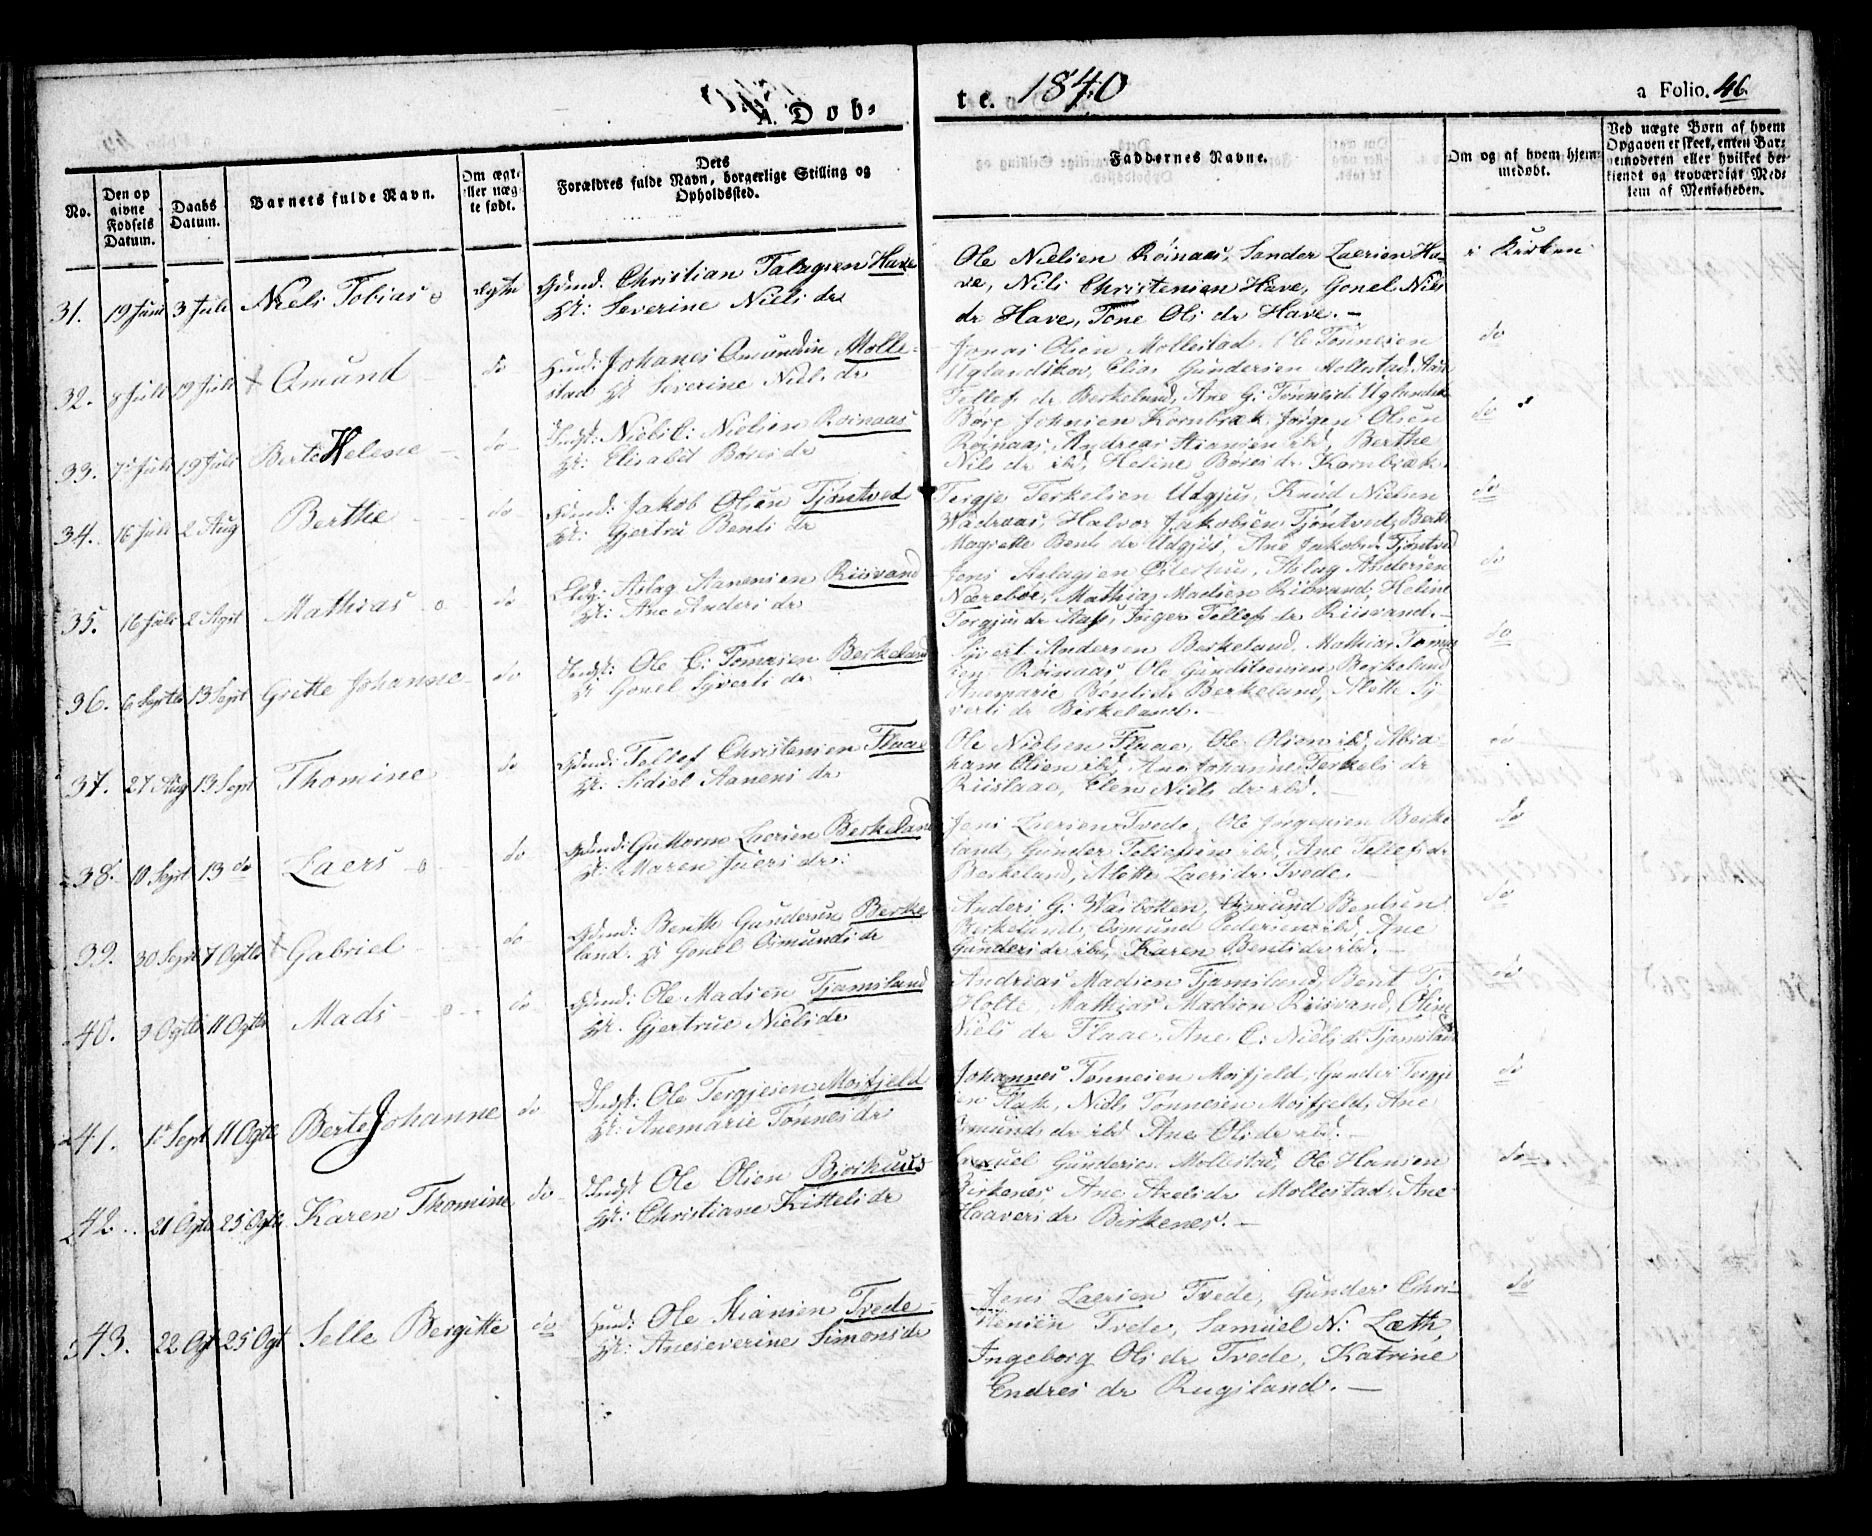 A. Dob-
te. 1840
a Folio. 46.
No.
Den op
givne
Fødsels
Datum.
Daabs
Datum.
Barnets fulde Navn.
Om ægte
eller uæg-
te født.
Dets
Forældres fulde Navn, borgerlige Stilling og
Opholdssted.
Faddernes Navne.
Om og af hvem hjem-
medøbt.
Ved uægte Børn af hvem
Opgaven er skeet, enten Bar-
nemoderen eller hvilket be-
kiendt og troværdigt Med-
lem af Menigheden.
31. 19 Juni 3 Juli Niels Tobias o ægte Gdmd. Christian Talagsen Have
Hst: Severine Niels dr
Ole Nielsen Roinaas, Sander Laersen Ha-
ve, Nils Christensen Have, Gonel Niels
dr Have, Tone Ols dr Have. —
i Kirken
32. 8 Juli 19 Juli Amund do Huusmd: Johanes Omundsen Molle-
stad Hst Siverine Niels dr
Jonas Olsen Mollestad, Ole Tønnesen
Uglandskov, Elias Gundersen Mollestad,
Tellefs dr Berkeland, Ane G: Tønnesdr Uglandsk
do
33. 7 Juli 19 Juli Berte Helene do Indst: Niels C: Nielsen Roinaas
Hst: Elisabet Børes dr
Børe Johnsen Kornbræk, Jørgen Olsen
Roinaas, Andreas Stiansen ibd, Berthe
Nils dr ibd, Heline Børes dr Kornbræk.
do
34. 16 Juli 2 Aug Berthe do Jakob Olsen Tjøntved
Hst: Gjertru Bents dr
Tergje Terkelsen Udgjus, Knud Nielsen
Wadraas, Halvor Jakobsen Tjøntved, Berthe
Magrette Bents dr Udgjus, Ane Jakobsdr Tjøntved
do
35. 16 Juli 2 Agst Mathias o do Aslag Aanensen Riisvand
Hst: Ane Anders dr
Jens Aslagsen Østerhus, Aslag Andersen
Næreboe, Mathias Madsen Riisvand, Heline
Torgjus dr Aass, Inger Tellefs dr Riisvand. —
do
36. 6 Septb 13 Sept Grette Johanne do Indst: Ole C: Tomasen Berkeland
Hst Gonel Syverts dr
Syvert Andersen Berkeland, Mathias Tomas
sen Roinaas, Ole Gunditensen Berkeland
Anemarie Bents dr Berkeland, Alette Sy-
verts dr Birkeland. —
do
37. 27 Aug 13 Sept Thomine do Gdmd: Tellef Christensen Flaae
Hst: Sidsel Aanens dr
Ole Nielsen Flaae, Ole Olsen ibd, Abra
ham Olsen ibd, Ane Johanne Terkels dr
Riislaae, Elen Niels dr ibd. —
do
38. 10 Sept 13 do Laers o do Gdmd: Guttorm Laersen Berkeland
Hst: Maren Juers dr:
Jens Laersen Tvede, Ole Jørgensen Berke
land, Gunder Tellefsen ibd, Ane Tellefs dr
Berkeland, Alette Laers dr Tvede. —
do
39. 30 Sept 7 Ogtb Gabriel do Gdmd: Benth Gundersen Berke
land. Hst Gonel Omunds dr
Anders G: Wasbotten, Omund Bentsen
Berkeland, Omund Pedersen ibd, Ane
Gunders dr ibd, Karen Bents dr ibd. —
do
40. 9 Ogtb 11 Ogtb Mads o do Gdmd: Ole Madsen Tjamsland
Hst. Gjertrue Niels dr
Andreas Madsen Tjamsland, Bent T:
Holte, Mathias Madsen Riisvand, Oline
Niels dr Flaae, Ane C: Niels dr Tjamsland
do
41. 1st Sept 11 Ogtb Berte Johanne do Indst: Ole Tergjesen Mosfjeld
Hst: Anemarie Tønnes dr
Johannes Tønnesen Mosfjeld, Gunder Tergje
sen Flak, Niels Tønnesen Mosfjeld, Ane
Omunds dr ibd Ane Ols dr ibd. —
do
42. 21 Ogtb 25 Ogtb Karen Thomine do Indst Ole Olsen Bjorkuus
Hst: Christiane Kittels dr
Samuel Gundersen Mollestad, Ole Hansen
Birkenes, Ane Axels dr Mollestad, Ane
Haavers dr Birkenes. —
do
43. 22 Ogt 25 Ogt Selle Bergitte do Huusmd: Ole Stiansen Tvede
Hst: Aneseverine Simons dr
Jens Laersen Tvede, Gunder Chri-
stensen Tvede, Samuel N: Læth,
Ingeborg Ols dr Tvede, Katrine
Endres dr Rugsland. —
do